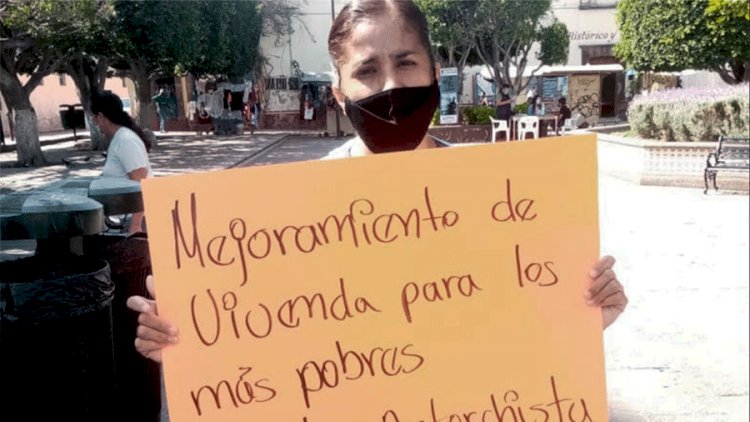 Histórica y
Mejoramiento de
Vivenda para los
más pobres
Antorchista